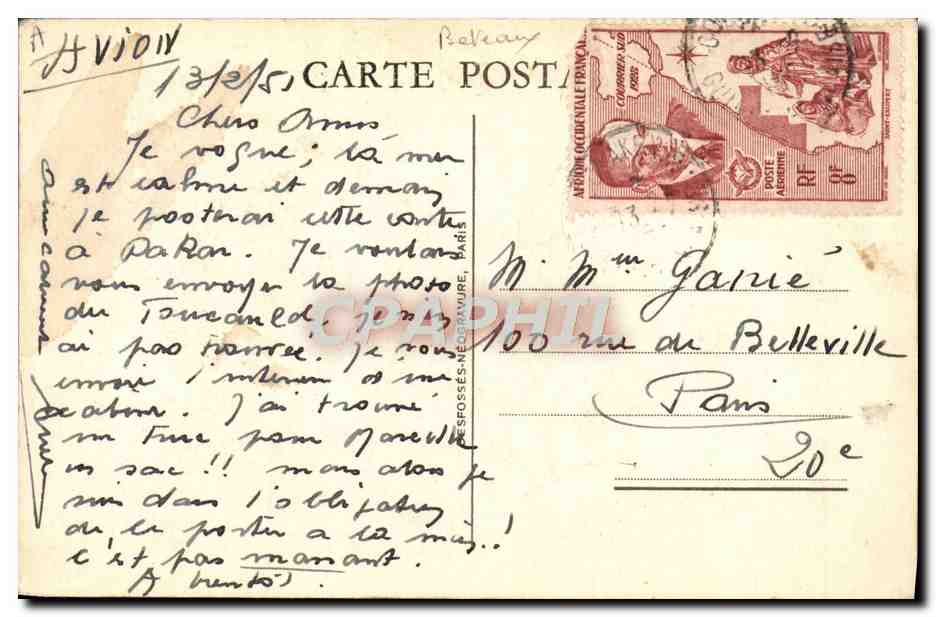 AVION
Bateaux
13/2/51
CARTE POSTA
Chers Amis
Je vogue; la mer
est calme et demain
je posterai cette carte
à Dakar. Je voulais
vous envoyer la photo
du Foucauld, je n'en
ai pas trouvée. Je vous
envoie l'intérieur de une
cabine. J'ai trouvé
un truc pour
un sac!! mais alors je
suis dans l'obligation
de le porter à la main..!
c'est pas marrant.
A bientôt.
Amicalement
DESFOSSÉS-NÉOGRAVURE, PARIS
CPAPHIL
AFRIQUE OCCIDENTALE FRANÇAISE
COURRIER SUD
1928
POSTE
AÉRIENNE
RF 8F
SAINT-EXUPERY
M. Mme Ganié
100 rue de Belleville
Paris
20e